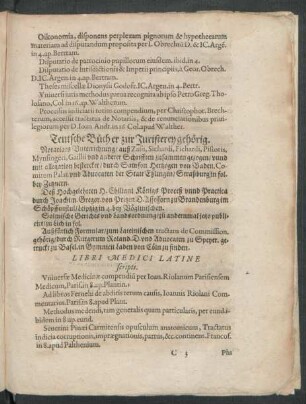 Oiconomia, disponens perplexam pignorum & hypothecarum
materiam ad disputandum proposita per L. Obrecht D. & IC. Arge.
in 4. ap. Bertram.
Disputatio de patrocinio pupillorum eiusdem. ibid. in 4.
Disputatio de Iurisdictionis & Imperii principiis, à Geor. Obrech.
D. IC. Argen. in 4. ap. Bertram.
Theses miscellæ Dionysii Godefr. IC. Argen. in 4. Bertr.
Vniversi iuris methodus recens recognita ab ipso Petro Greg. Tho
losano, Col. in 8. ap. Waltherum.
Processus iudiciarii totum compendium, per Christophor. Brech-
terum, accessit tractatus de Notariis, & de renunciationibus privi-
legiorum per D. Ioan Andr. in 16 Col. apud Walther.
Teutsche Bücher zur Juristerey gehörig.
Notariat Underrichtung: auß Zasii, Bartoli, Fichardi, Pistoris,
Mynsingeri, Gailii und anderer Schrifften zusammen gezogen: vnnd
mit allegaten bestercket: durch
Comitem Palat. vnd Advocaten der Statt Eßlingen, Straßburg in fol.
bey Zetznern.
Deß Hochgelehrten H. Chilian Königs Proceß vnnd Practica
durch Joachim Gregor. von Pritzen D. Assessorn zu Brandenburg im
Schöpffenstul, Leipzig in 4. bey
Solmische Gerichts vnd Landordnung, jetzt andermal inns publi-
cirt in fol.
Außführlich Formular, zum lateinischen tractatu de Commission.
gehörig: durch Rutgerum Roland D. von Advocaten zu Speyer, ge-
truckt zu Basel, in Gymnici laden von Cöln zu finden.
LIBRI MEDICI LATINE
scripte.
Vniversæ Medicinæ compendia per Ioan. Riolanum Parisiensem
Medicum, Paris. in 8. ap. Plantin.
Ad libros Fernelii de abditis rerum causis, Ioannis Riolani Com-
mentarius. Parisiis 8. apud Plant.
Methodus medendi, tam generalis quam particularis, per eun-
dem in 8. ap. eund.
Severini Pinæi Carnutensis opusculum anatomicum, Tractatus
indicia corruptionis, imprægnationis, partus, &c. continens. Francof.
in 8. apud Palthenium.
C 3 Phi